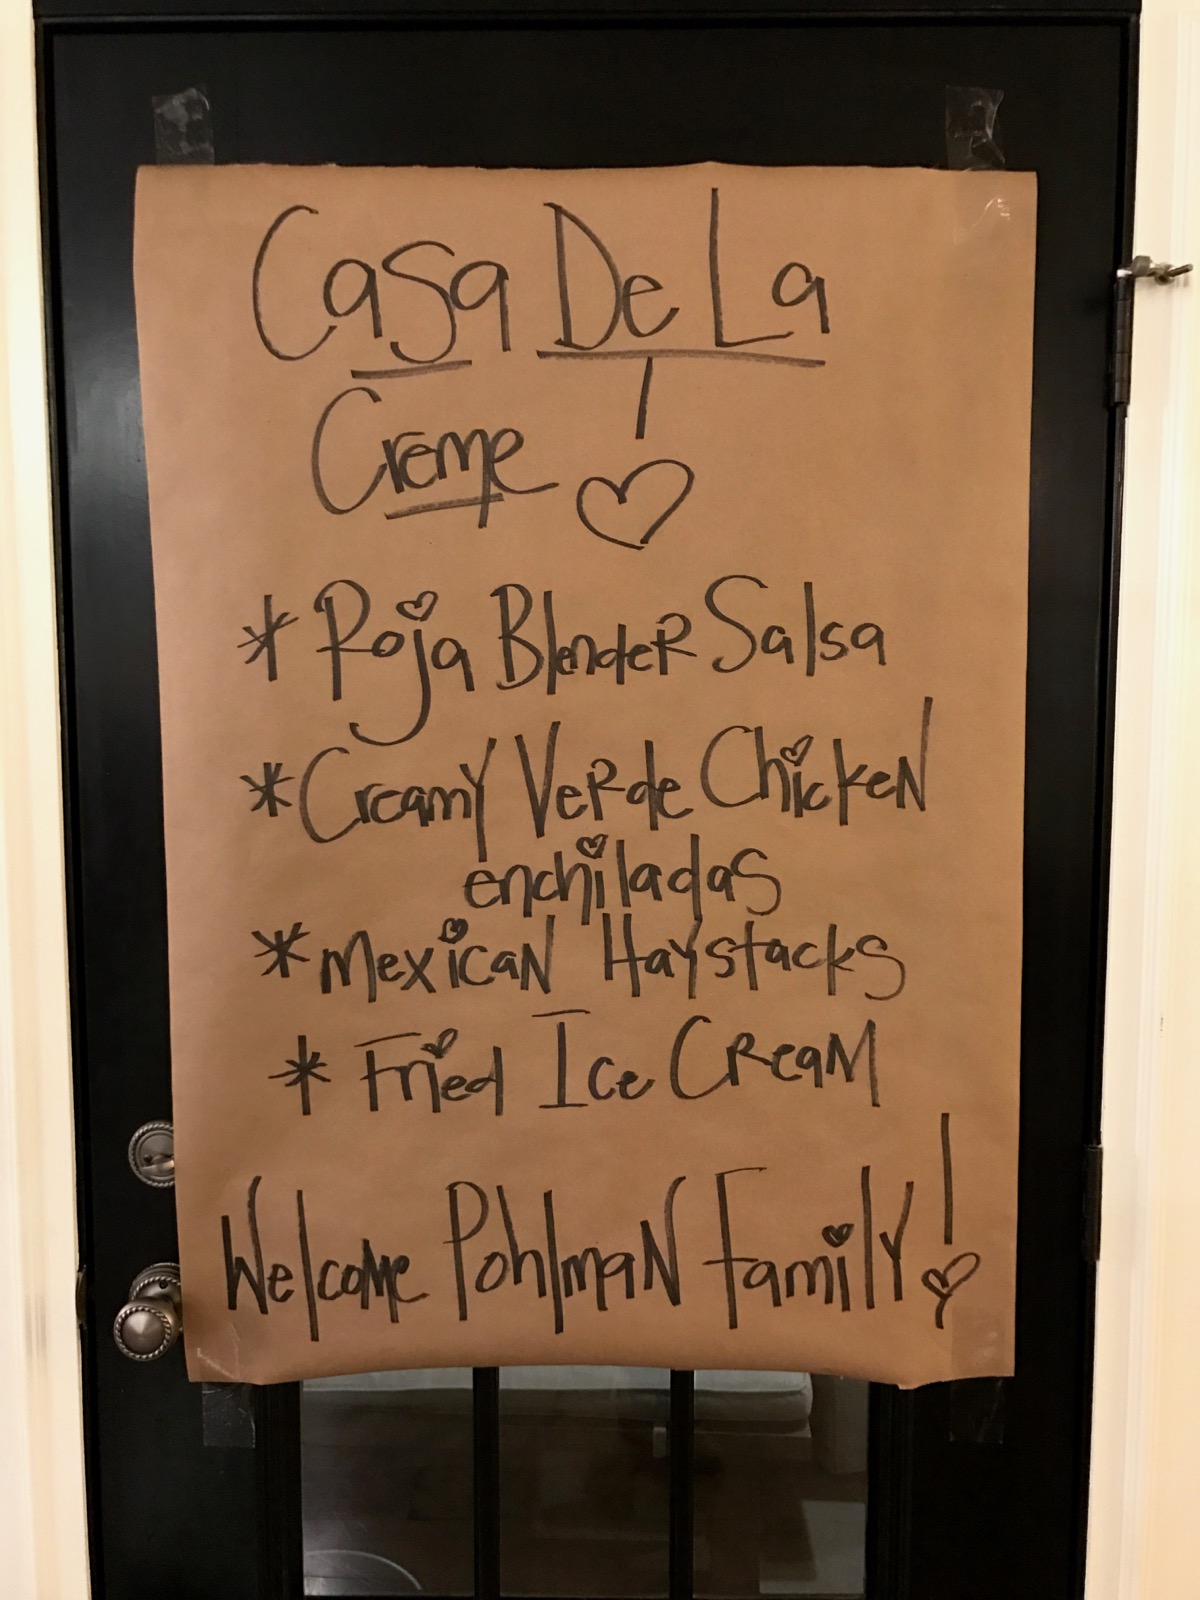 Casa De La
Creme
* Roja Blender Salsa
* Creamy Verde Chicken
enchiladas
* Mexican Haystacks
* Fried Ice Cream
Welcome Pohlman Family!